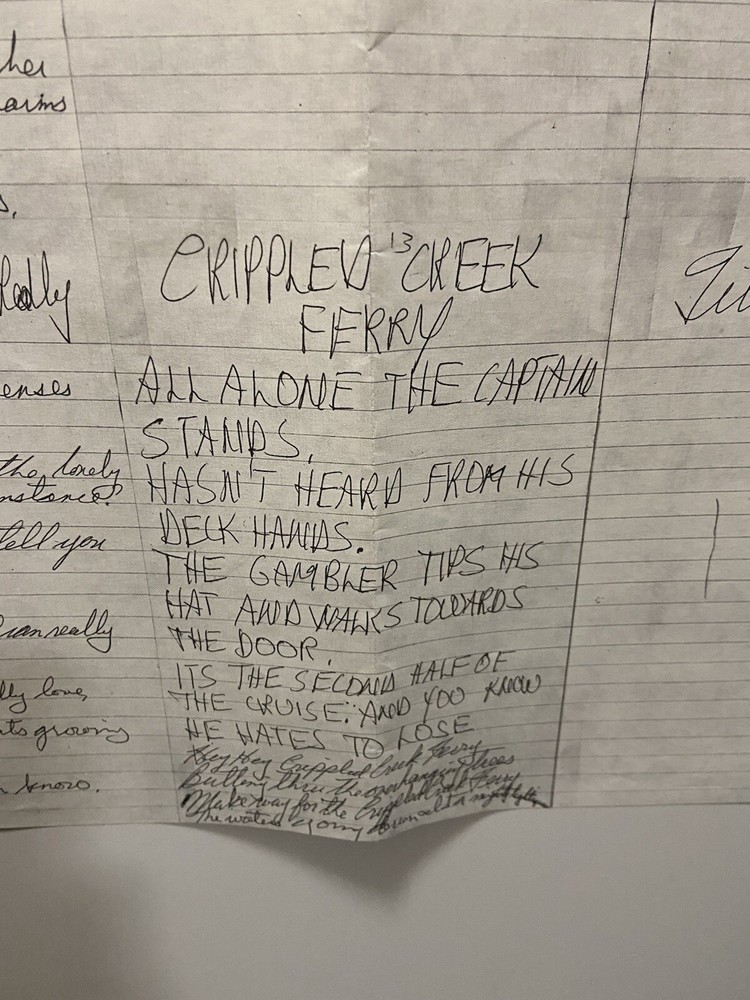 her
arms
s,
Really
enses
the lonely
nstance?
tell you
can really
lly love,
ts growing
know.
CRIPPLED 13 CREEK
FERRY
ALL ALONE THE CAPTAIN
STANDS,
HASN'T HEARD FROM HIS
DECK HANDS.
THE GAMBLER TIPS HIS
HAT AND WALKS TOWARDS
THE DOOR,
ITS THE SECOND HALF OF
THE CRUISE. AND YOU KNOW
HE HATES TO LOSE
Hey Hey Crippled Creek Ferry
Butting thru the overhanging trees
Make way for the Crippled Creek Ferry
The waters going down it's a mighty